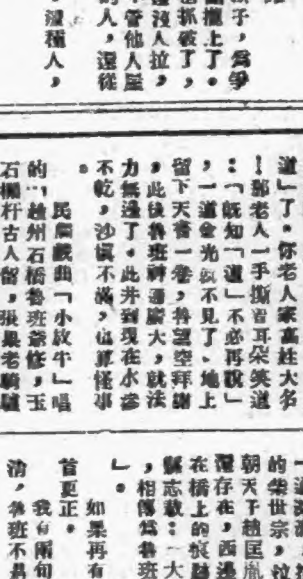 子，爲爭
撞上了。
抓破了，
沒人拉，
管他人屋
的人，還從
這種人，
道」了。你老人家高姓大名
！那老人一手撕着耳朵笑道
：「既知「道」不必再說」
，一道金光就不見了、地上
留下天書一卷，魯望空拜謝
，此後魯班神通廣大，就法
力無邊了。此井到現在水滲
不乾，沙填不滿，也算怪事
。
民間戲曲「小放牛」唱
的「趙州石橋魯班爺修，玉
石欄杆古人留，張果老騎驢
一道
的柴世宗，
朝天子趙匡胤
還存在，西邊
在橋上的痕跡
縣志載：一大
，相傳爲魯班
」。
如果再有
首更正。
我有兩句
清，魯班不